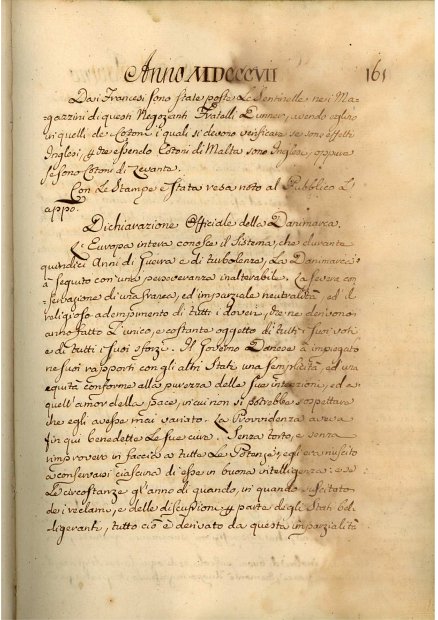 Anno MDCCCVII 161
Dai Francesi sono state poste Le Sentinelle nei Ma=
gazzini di questi Negozianti Fratelli avendo eglino
in quelli de Cotoni i quali si devono verificare se sono effetti
Inglesi, essendo Cotoni di Malta sono Inglesi, oppure
se sono Cotoni di Levante.
Con Le Stampe è stata resa noto al Pubblico L'
appo.
Dichiarazione Officiale della Danimarca.
L'Europa intera conosce il Sistema, che durante
quindici Anni di Guerra e di turbolenza, La Danimarca
à seguito con una perseveranza inalterabile. La severa con=
servazione di una franca, ed imparziale neutralità, ed il
religioso adempimento di tutti i doveri, che ne derivono
anno fatto L'unico, e costante oggetto di tutti i suoi voti
e di tutti i suoi sforzi. Il Governo Danese à impiegato
ne suoi rapporti con gli altri Stati una semplicità, ed una
equità conforme alla purezza delle sue intenzioni, ed a
quell'amor della pace, in cui non si potrebbe sospettare
che egli avesse mai variato. La Provvidenza aveva
fin qui benedette Le sue cure. Senza torto, e senza
rimprovero in faccia a tutte Le Potenze, egli era riuscito
a conservarsi ciascuna di esse in buona intelligenza: e se
Le circostanze gl'anno di quando, in quando suscitato
dei reclami, e delle discussioni parte degli Stati bel=
ligeranti, tutto ciò è derivato da questa imparzialità